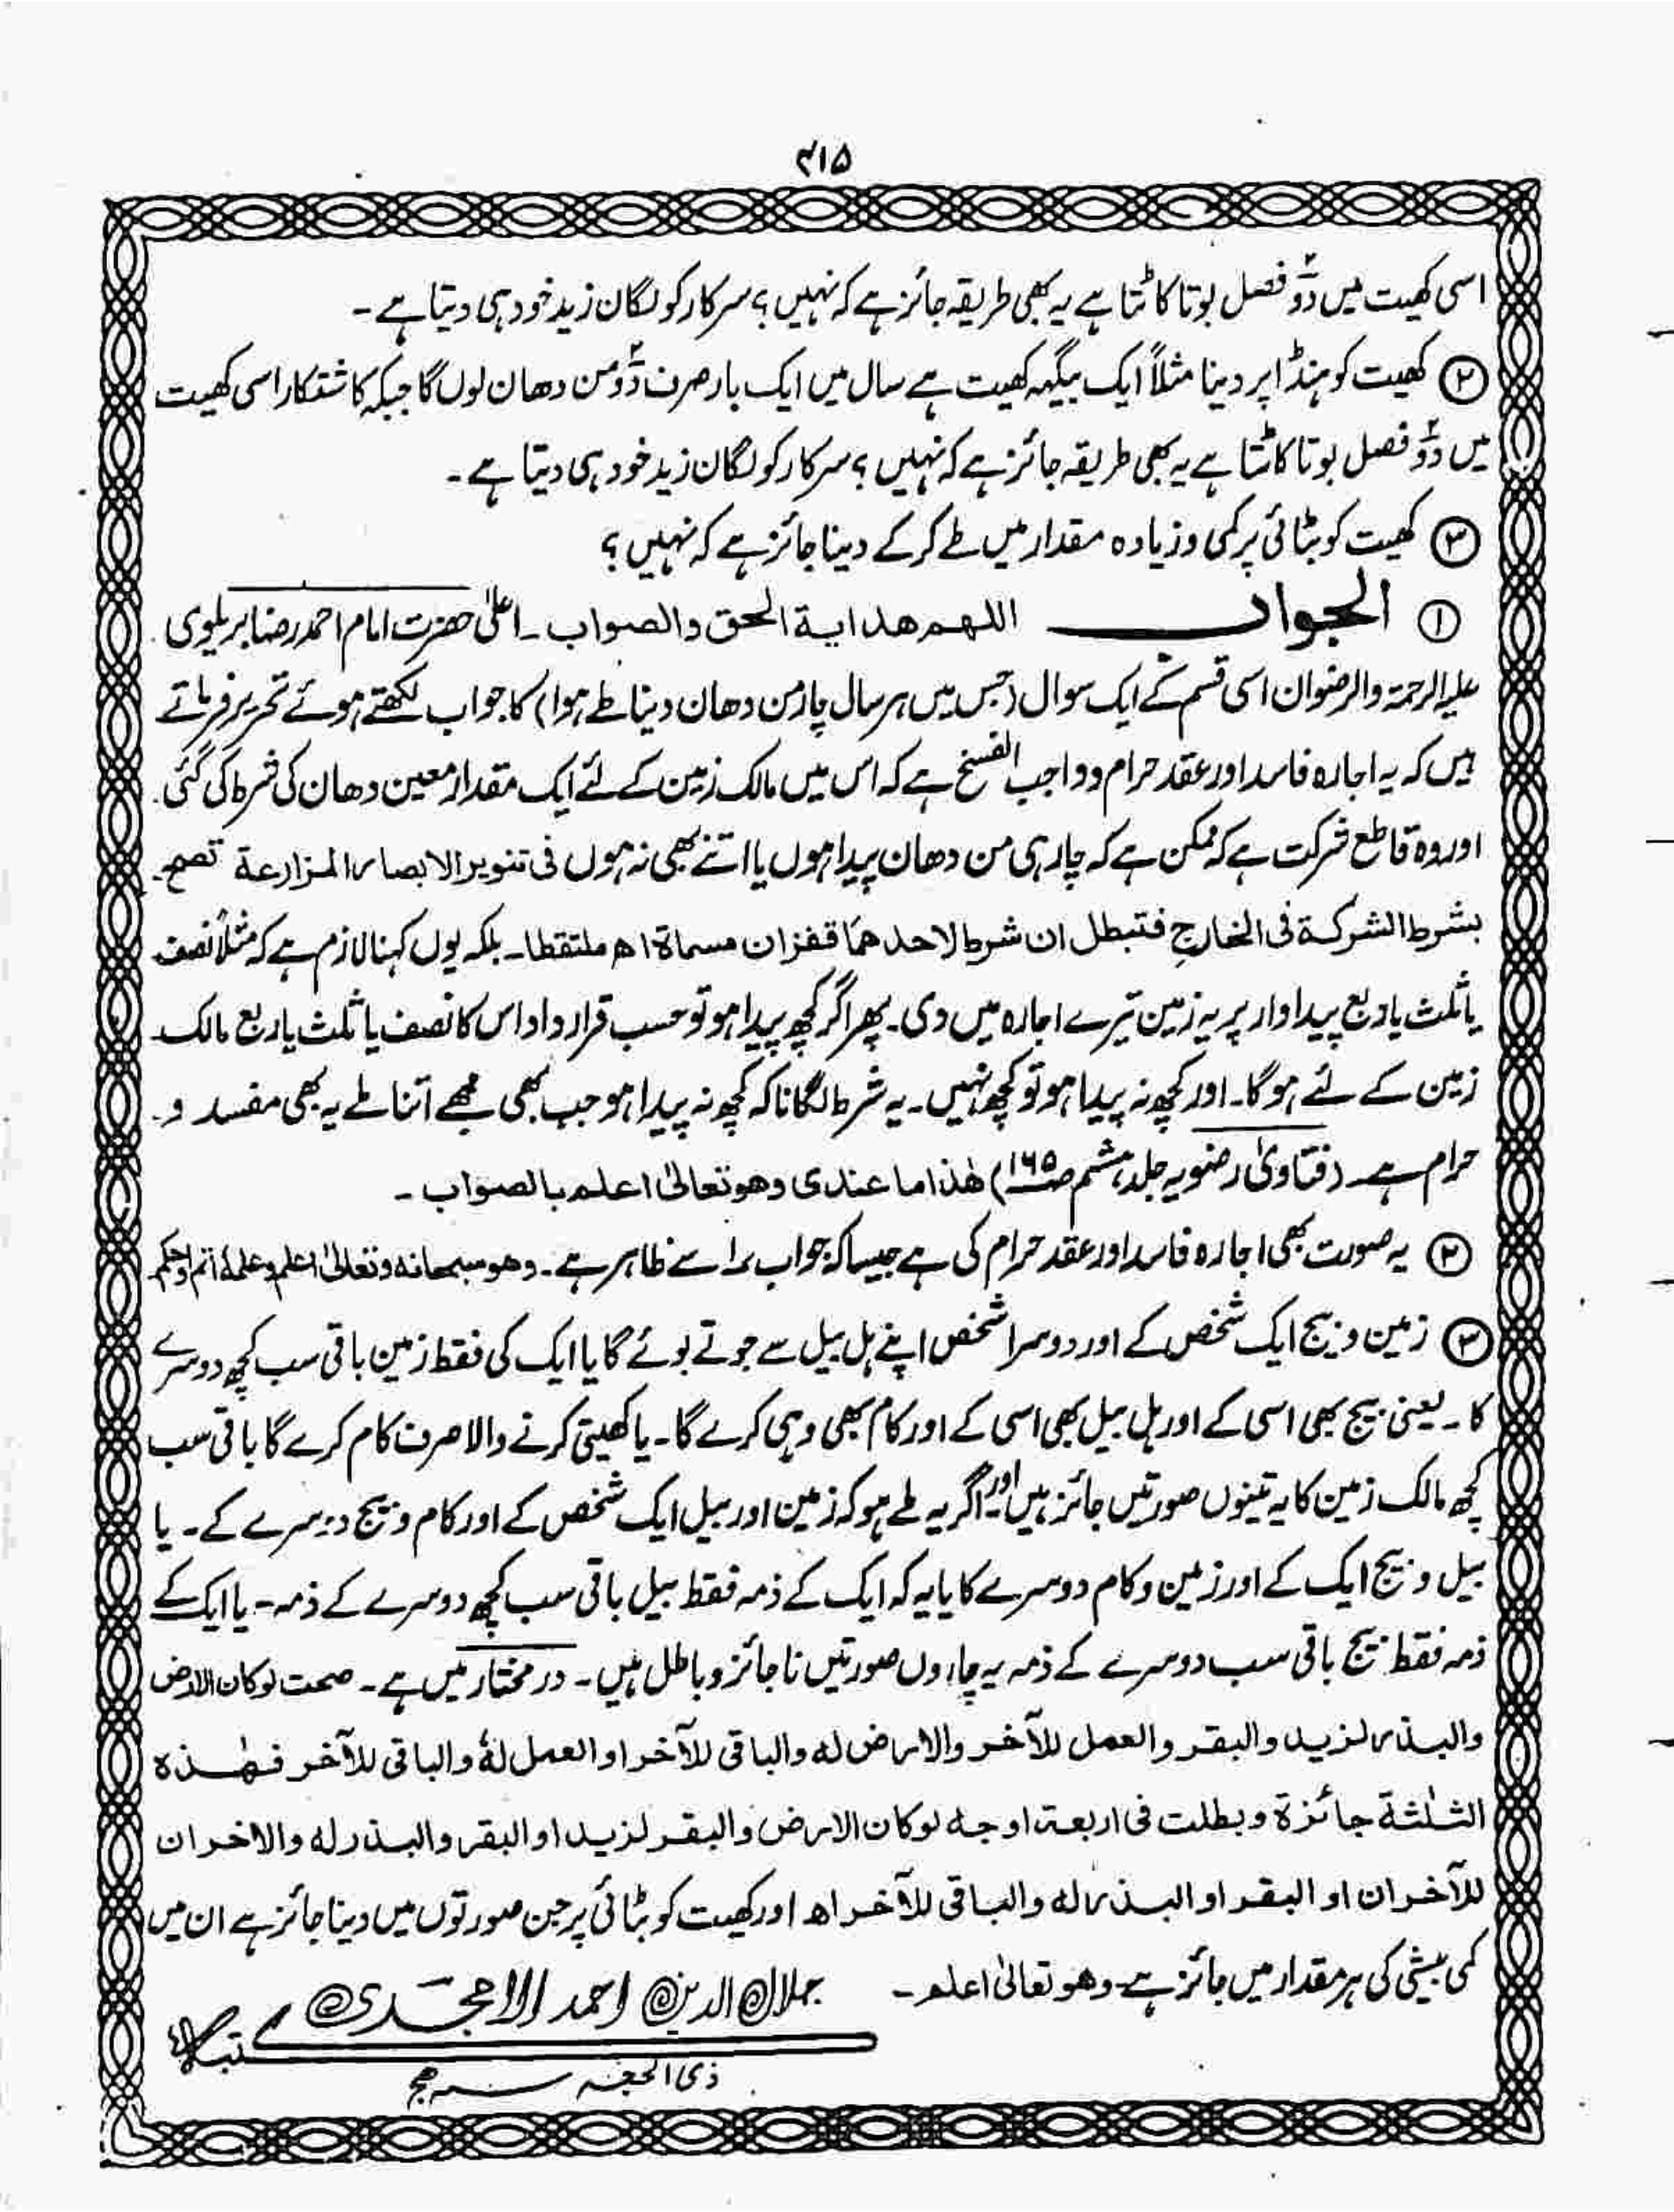 ۴۱۵
اسی کھیت میں دو۲ فصل بوتا کاٹتا ہے یہ بھی طریقہ جائز ہے کہ نہیں ؟ سرکار کو لگان زید خود ہی دیتا ہے ۔
۲ کھیت کو ہنڈا پر دینا مثلاً ایک بیگہہ کھیت ہے سال میں ایک بار صرف دو۲ من دھان لوں گا جبکہ کاشتکار اسی کھیت
میں دو۲ فصل بوتا کاٹتا ہے یہ بھی طریقہ جائز ہے کہ نہیں ؟ سرکار کو لگان زید خود ہی دیتا ہے ۔
۳ کھیت کو بٹائی پر کمی و زیادہ مقدار میں طے کر کے دینا جائز ہے کہ نہیں ؟
۱ الجواب اللہم ھدایۃ الحق والصواب ۔ اعلیٰ حضرت امام احمد رضا بریلوی
علیہ الرحمۃ والرضوان اسی قسم کے ایک سوال (جس میں ہر سال چار من دھان دینا طے ہوا) کا جواب لکھتے ہوئے تحریر فرماتے
ہیں کہ یہ اجارہ فاسد اور عقد حرام و واجب الفسخ ہے کہ اس میں مالک زمین کے لئے ایک مقدار معین دھان کی شرط کی گئی
اور وہ قاطع شرکت ہے کہ ممکن ہے کہ چار ہی من دھان پیدا ہوں یا اتنے بھی نہ ہوں فی تنویر الابصار المزارعۃ تصح
بشرط الشرکۃ فی الخارج فتبطل ان شرط لاحدھما قفزان مسماۃ اھ ملتقطا ۔ بلکہ یوں کہنا لازم ہے کہ مثلاً نصف
یا ثلث یا ربع پیداوار پر یہ زمین تیرے اجارہ میں دی ۔ پھر اگر کچھ پیدا ہو تو حسب قرار داد اس کا نصف یا ثلث یا ربع مالک
زمین کے لئے ہوگا ۔ اور کچھ نہ پیدا ہو تو کچھ نہیں ۔ یہ شرط لگانا کہ کچھ نہ پیدا ہو جب بھی مجھے اتنا ملے یہ بھی مفسد و
حرام ہے ۔ (فتاویٰ رضویہ جلد ہشتم ص۱۶۵) ھٰذا ما عندی وھو تعالیٰ اعلم بالصواب ۔
۲ یہ صورت بھی اجارہ فاسد اور عقد حرام کی ہے جیسا کہ جواب ۱ سے ظاہر ہے ۔ وھو سبحانہ وتعالیٰ اعلم وعلمہٗ اتم واحکم
۳ زمین و بیج ایک شخص کے اور دوسرا شخص اپنے ہل بیل سے جوتے بوئے گا یا ایک کی فقط زمین باقی سب کچھ دوسرے
کا ۔ یعنی بیج بھی اسی کے اور ہل بیل بھی اسی کے اور کام بھی وہی کرے گا ۔ یا کھیتی کرنے والا صرف کام کرے گا باقی سب
کچھ مالک زمین کا یہ تینوں صورتیں جائز ہیں اور اگر یہ طے ہو کہ زمین اور بیل ایک شخص کے اور کام و بیج دوسرے کے ۔ یا
بیل و بیج ایک کے اور زمین و کام دوسرے کا یا یہ کہ ایک کے ذمہ فقط بیل باقی سب کچھ دوسرے کے ذمہ ۔ یا ایک کے
ذمہ فقط بیج باقی سب دوسرے کے ذمہ یہ چاروں صورتیں ناجائز و باطل ہیں ۔ در مختار میں ہے ۔ صحت لو کان الارض
والبذر لزید والبقر والعمل للآخر والارض لہ والباقی للآخر او العمل لہٗ والباقی للآخر فھٰذہ
الثلٰثۃ جائزۃ وبطلت فی اربعۃ اوجہ لو کان الارض والبقر لزید او البقر والبذر لہ والاخران
للآخران او البقر او البذر لہ والباقی للآخر اھ اور کھیت کو بٹائی پر جن صورتوں میں دینا جائز ہے ان میں
کمی بیشی کی ہر مقدار میں جائز ہے وھو تعالیٰ اعلم ۔
جلال الدین احمد الامجدی
ذی الحجہ